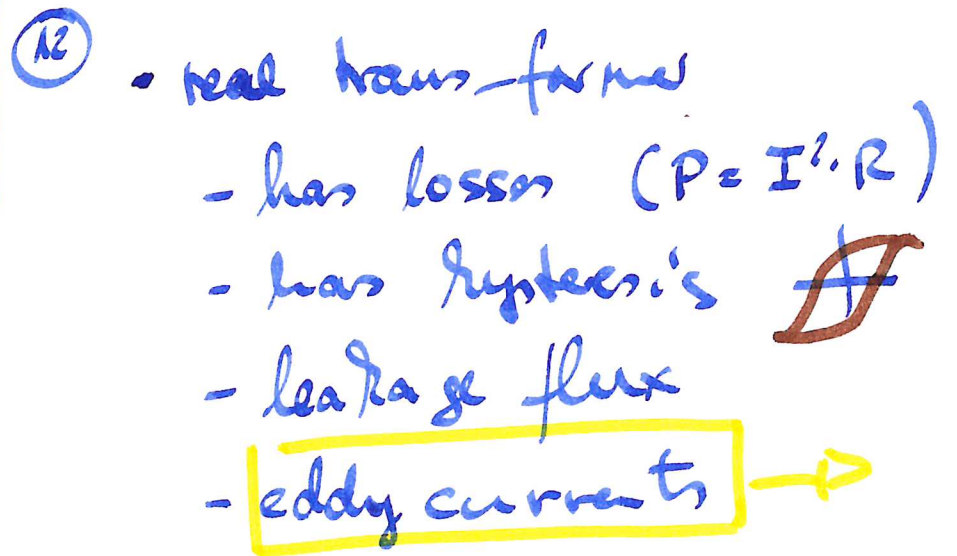 12
• real transformer
- has losses (P = I². R)
- has hysteresis
- leakage flux
- eddy currents